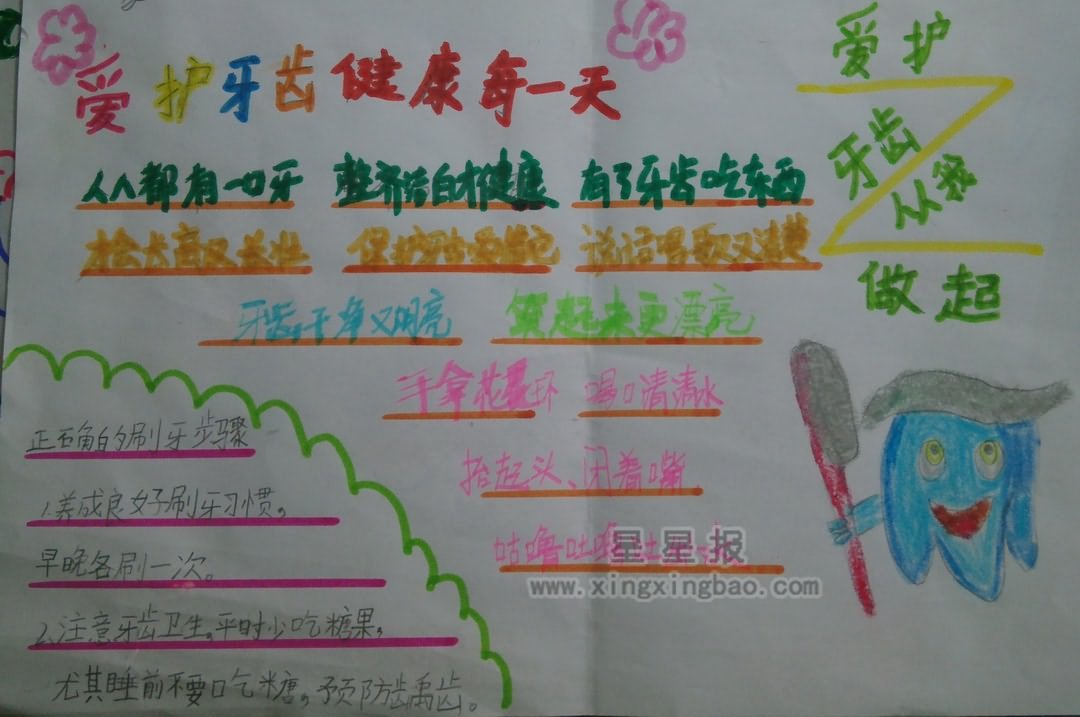 爱护牙齿健康每一天
人人都有一口牙 整齐洁白才健康 有了牙齿吃东西
又 保护牙齿 说话唱歌又清楚
牙齿干净又明亮 笑起来更漂亮
手拿花 环 喝口清清水
抬起头、闭着嘴
咕噜吐
爱护
牙齿
从我
做起
正确的刷牙步骤
1.养成良好刷牙习惯,
早晚各刷一次。
2.注意牙齿卫生,平时少吃糖果,
尤其睡前不要吃糖,预防龋齿。
星星报
www.xingxingbao.com